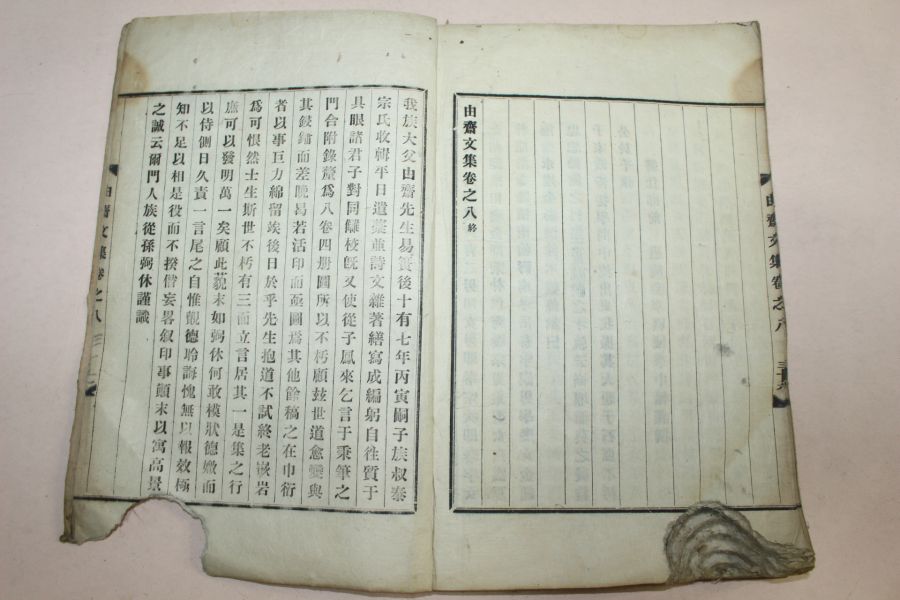 由齋文集卷之八 終
由齋文集卷之八
我族大父由齋先生易簀後十有七年丙寅嗣子族叔泰
宗氏收輯平日遺藁並詩文雜著繕寫成編躬自徃質于
具眼諸君子對同讎校旣又使從子鳳來乞言于秉筆之
門合附錄釐爲八卷四册圖所以不朽顧玆世道愈變與
其鋟鏽而差晩曷若活印而亟圖爲其他餘稿之在巾衍
者以事巨力綿留竢後日於乎先生抱道不試終老嵌岩
爲可恨然士生斯世不朽有三而立言居其一是集之行
庶可以發明萬一矣顧此藐末如弼休何敢模狀德嫩而
以侍側日久責一言尾之自惟覿德聆誨愧無以報效極
知不足以相是役而不揆僭妄畧叙印事顚末以寓高景
之誠云爾門人族從孫弼休謹識
由齋文集卷之八